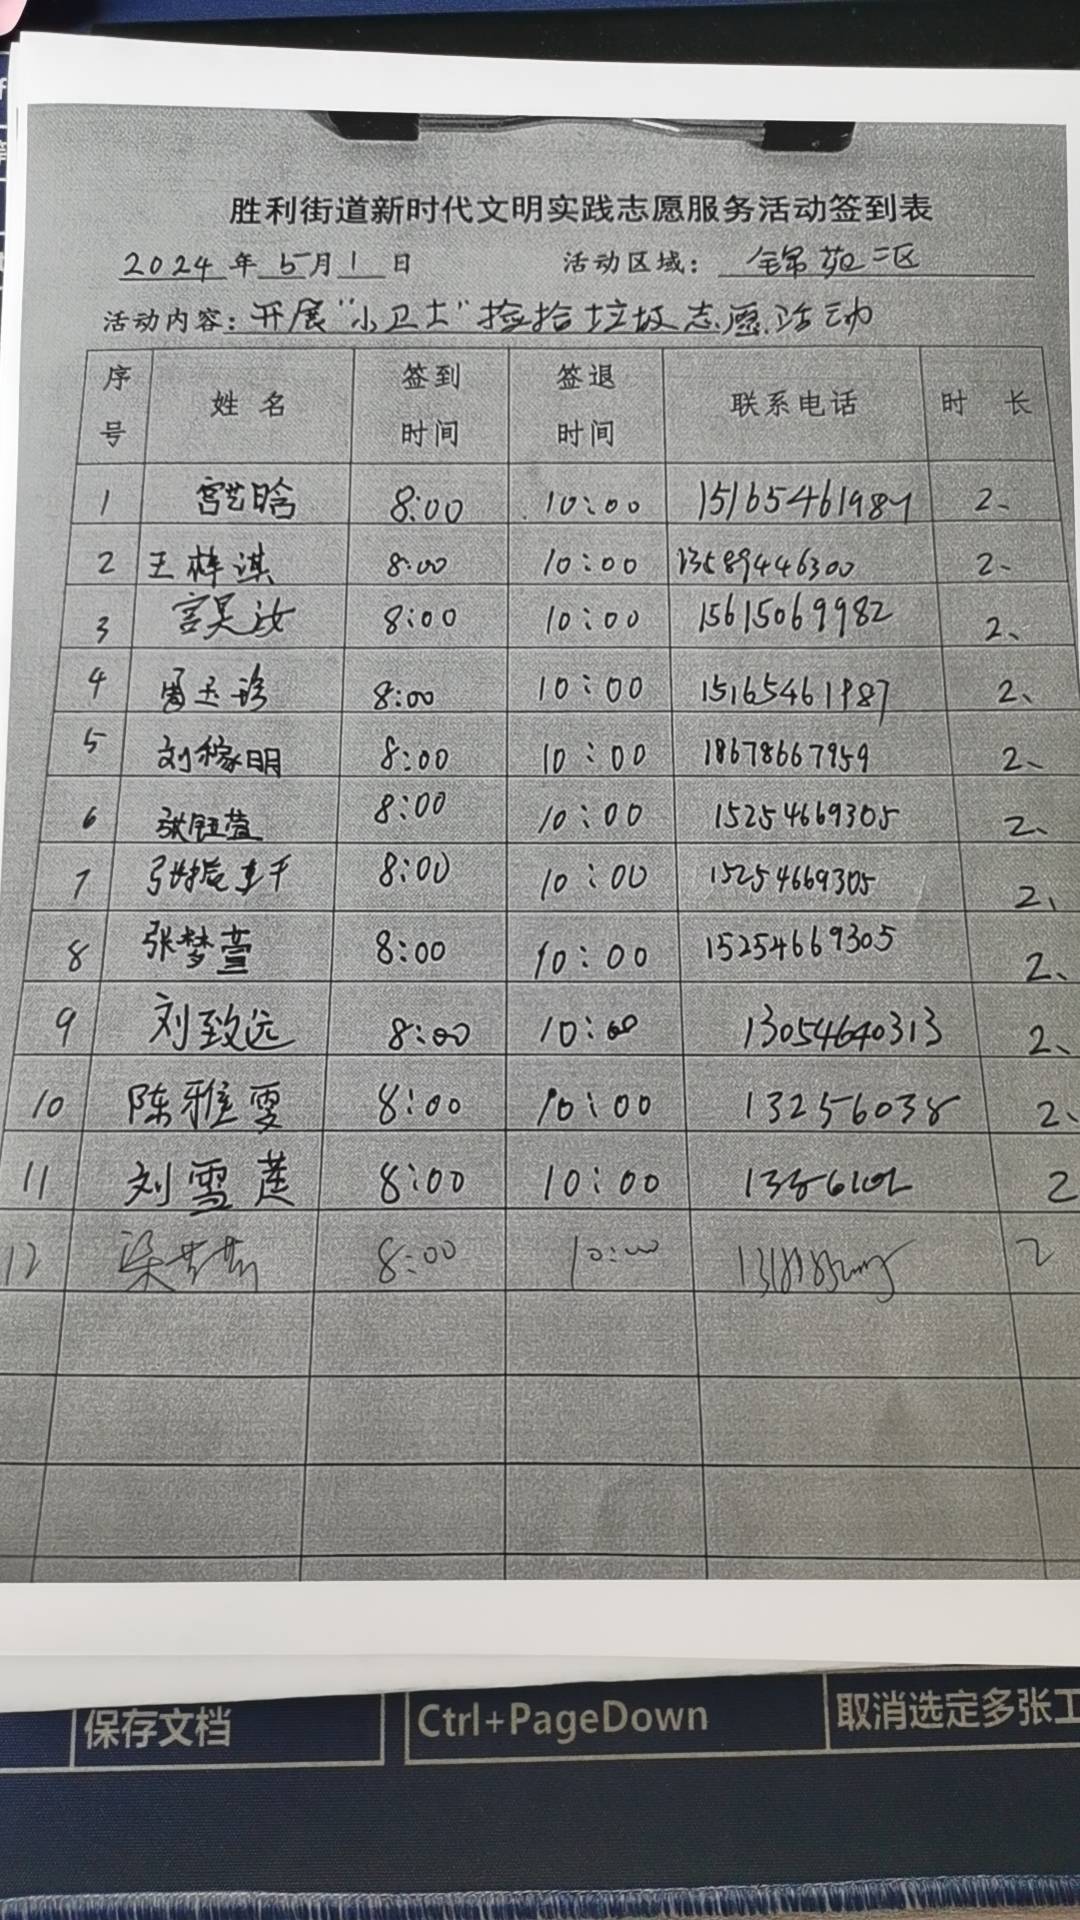 胜利街道新时代文明实践志愿服务活动签到表
2024年5月1日 活动区域：锦苑二区
活动内容：开展“小卫士”捡拾垃圾志愿活动
序号 姓名 签到时间 签退时间 联系电话 时长
1 宫艺晗 8:00 10:00 15165461987 2、
2 王梓淇 8:00 10:00 13589446300 2、
3 宫昊汝 8:00 10:00 15615069982 2、
4 周玉珍 8:00 10:00 15165461987 2、
5 刘稼明 8:00 10:00 18678667959 2、
6 张钰萱 8:00 10:00 15254669305 2、
7 8:00 10:00 15254669305 2、
8 张梦萱 8:00 10:00 15254669305 2、
9 刘致远 8:00 10:00 13054640313 2、
10 陈雅雯 8:00 10:00 13256038 2、
11 刘雪莲 8:00 10:00 2
12 8:00 10:00 2
保存文档 Ctrl+PageDown 取消选定多张工